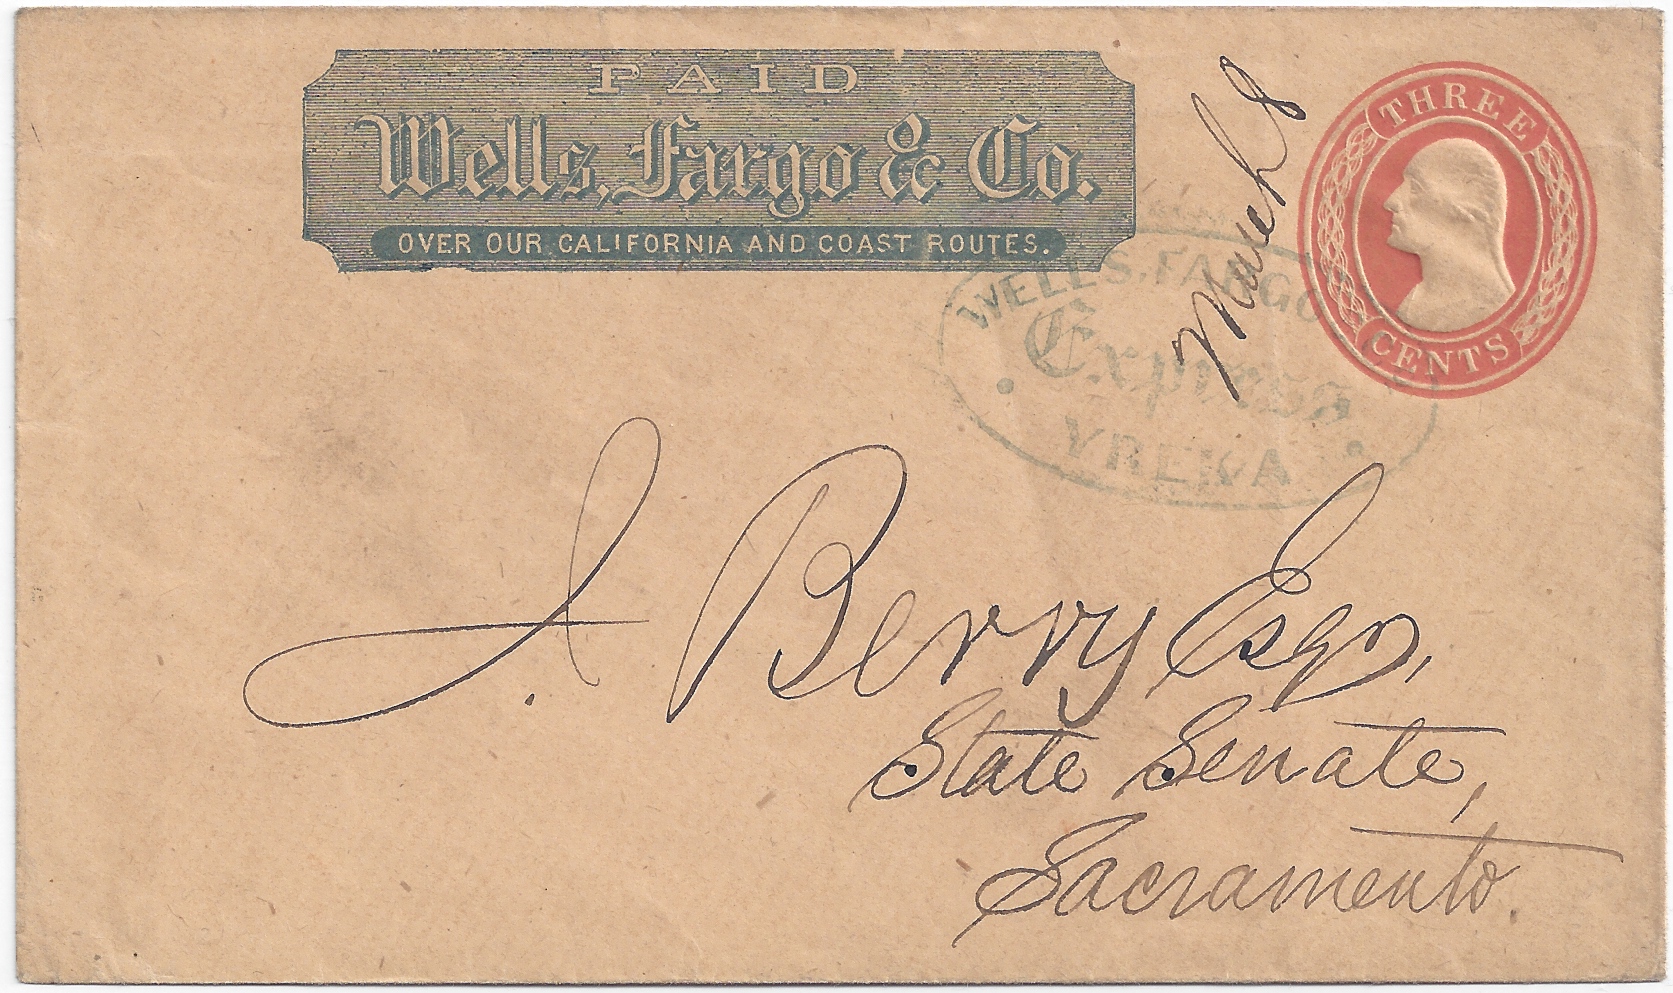 PAID
Wells, Fargo & Co.
OVER OUR CALIFORNIA AND COAST ROUTES.
March 8
THREE
CENTS
WELLS, FARGO
Express
YREKA
J. Berry Esqr,
State Senate,
Sacramento.